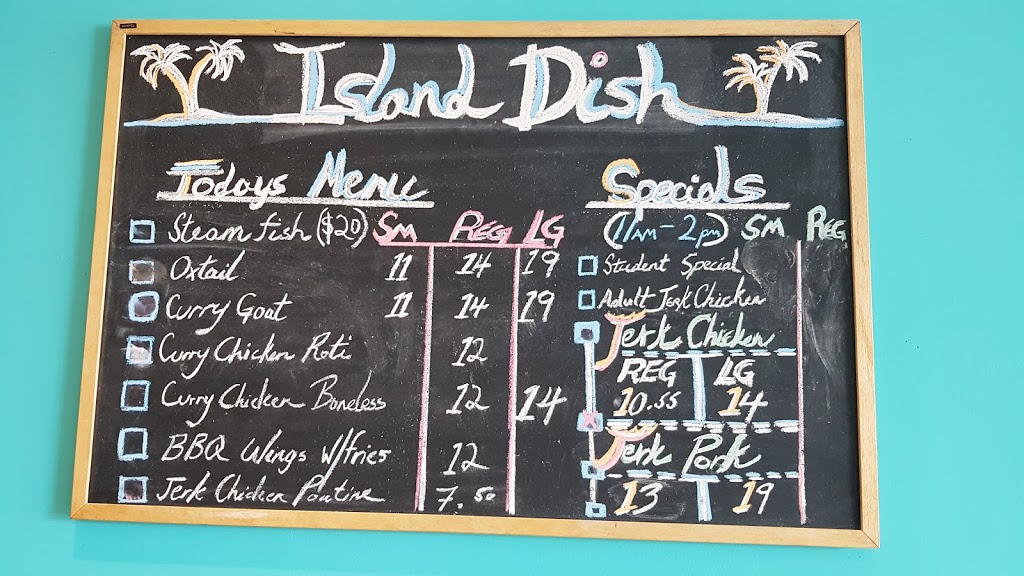 Island Dish
Todays Menu
Steam fish ($20) SM REG LG
Oxtail 11 14 19
Curry Goat 11 14 19
Curry Chicken Roti 12
Curry Chicken Boneless 12 14
BBQ Wings W/fries 12
Jerk Chicken Poutine 7.50
Specials
(11AM - 2pm) SM REG
Student Special
Adult Jerk Chicken
Jerk Chicken
REG LG
10.55 14
Jerk Pork
13 19